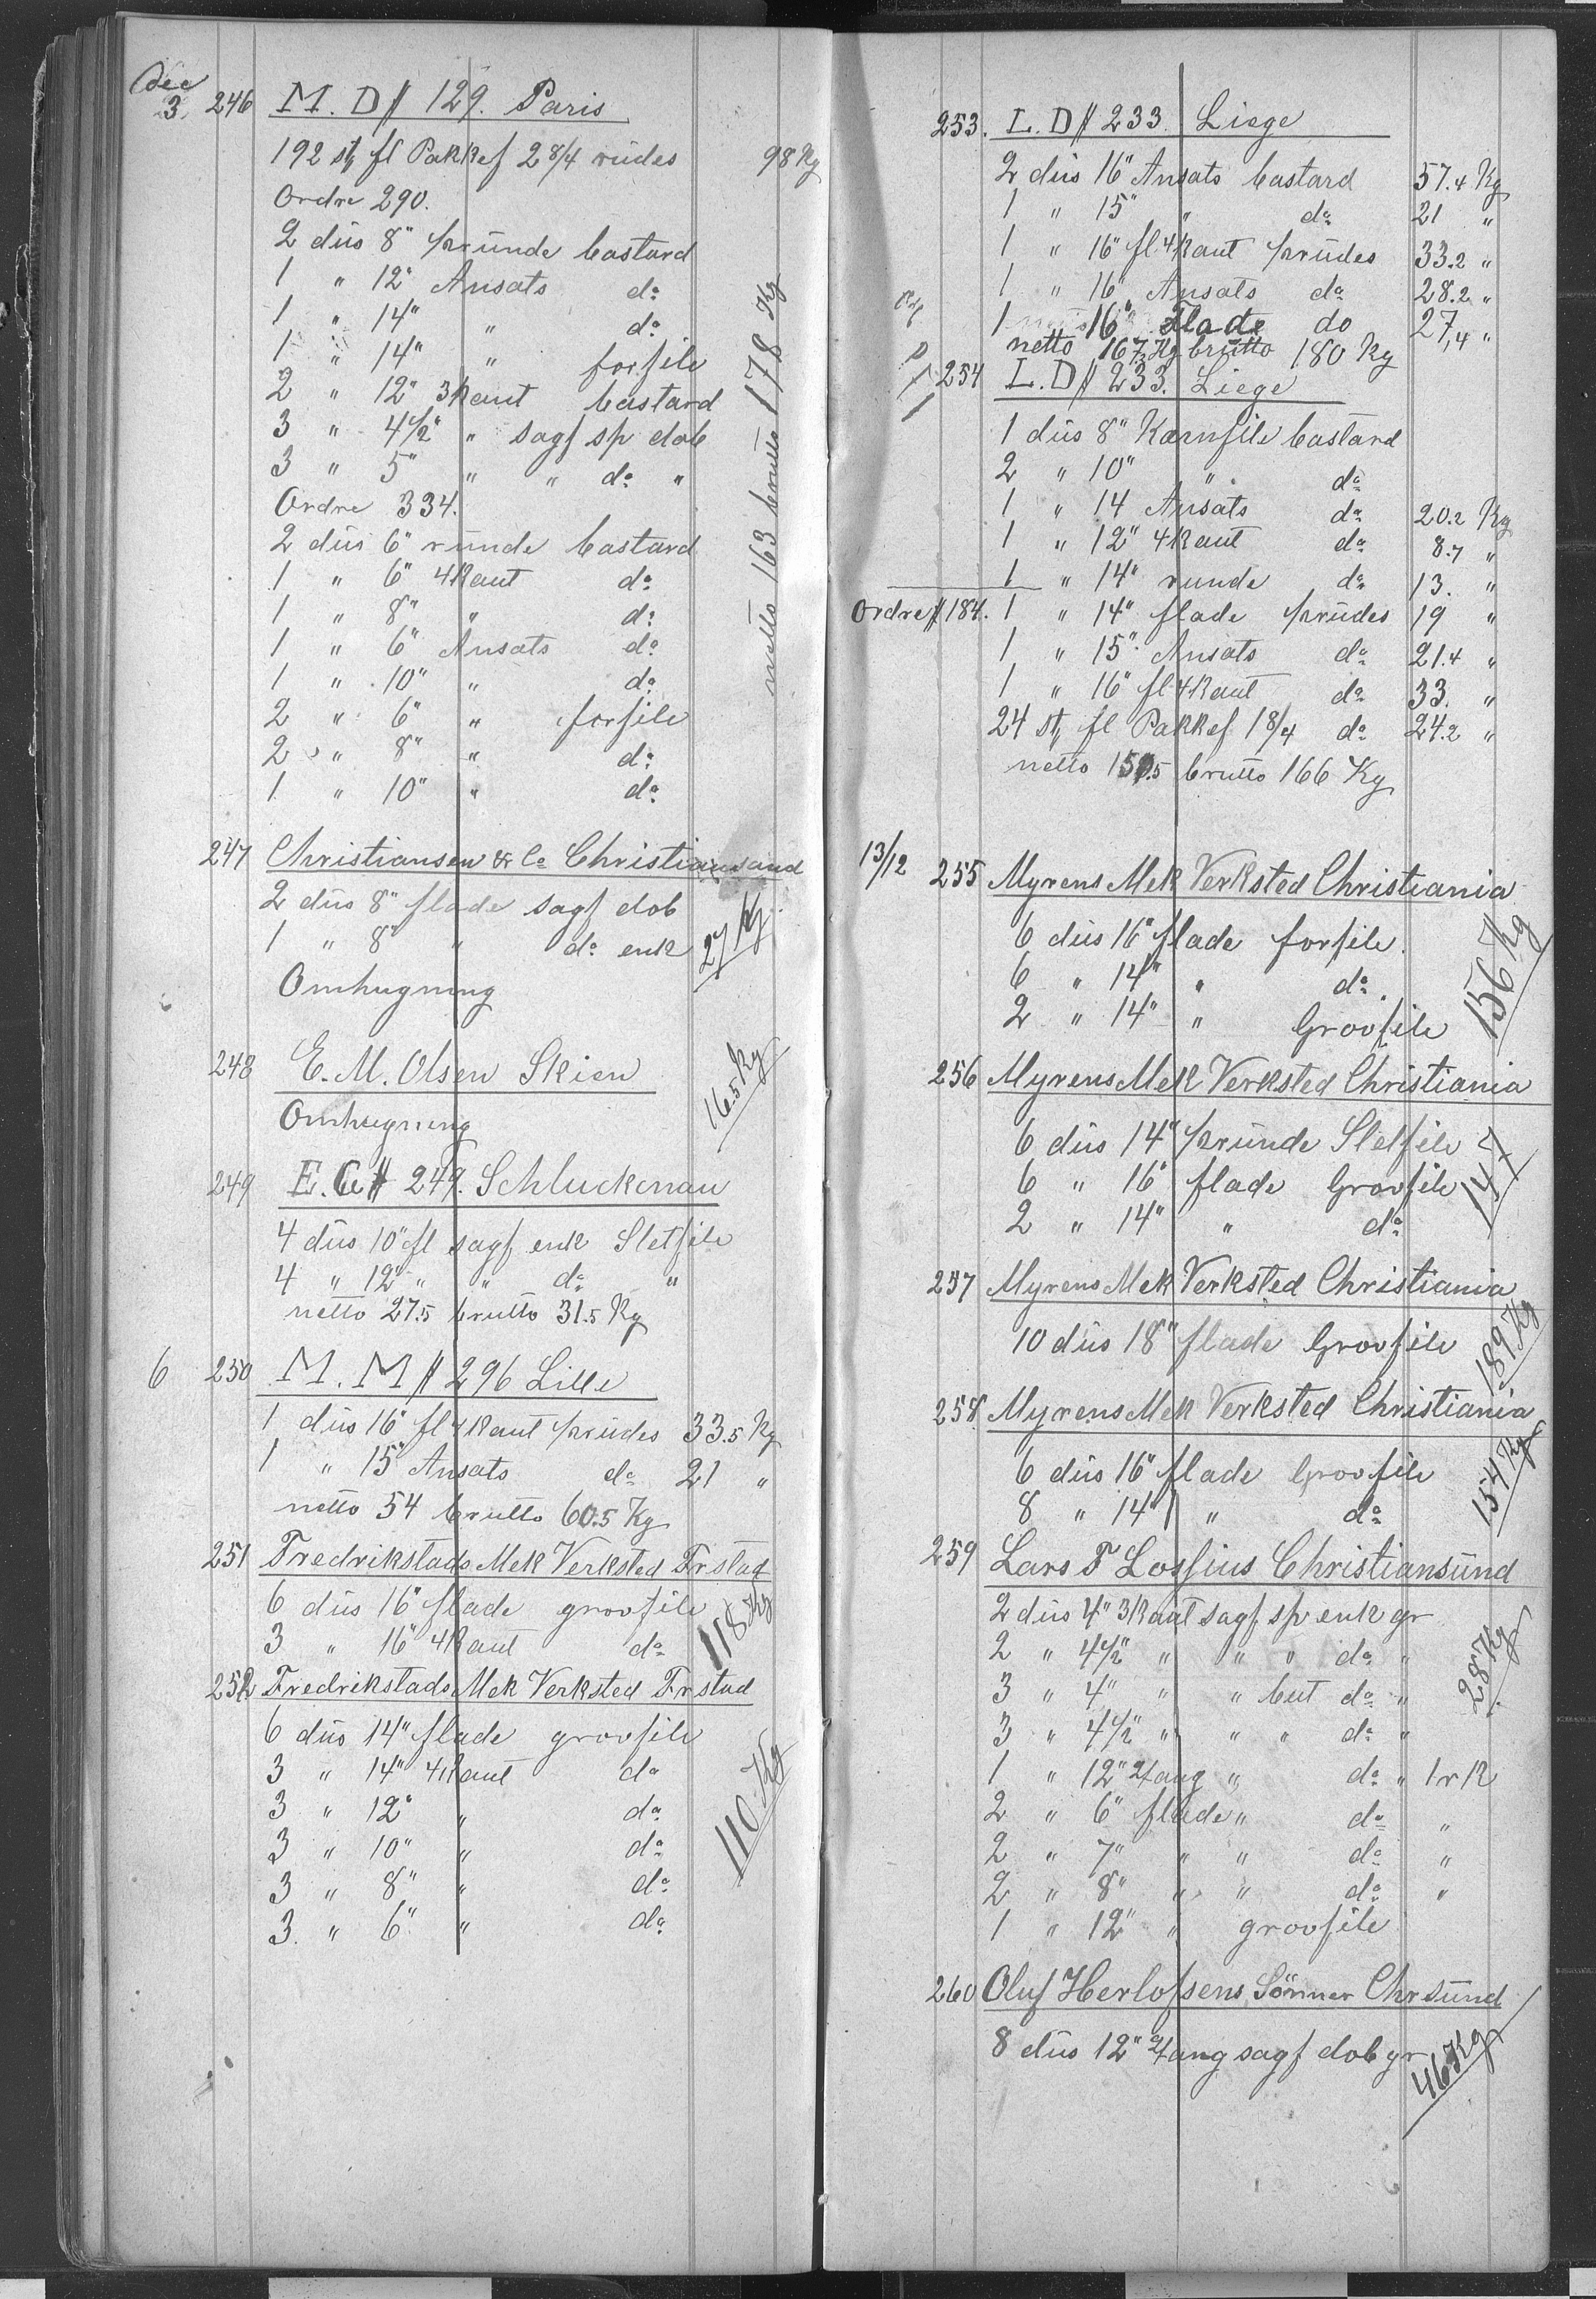 Dec
3. 246 M. D # 129. Paris
192 st fl Pakkef 2 8/4 rüdes 98 Kg
Ordre 290.
2 düs 8" ½ründe bastard
1 " 12" Ansats do
1 " 14" " do
1 " 14" " forfile
2 " 12" 3kant bastard
3 " 4½" " sagf sp dob
3 " 5" " " do "
netto 163 brutto 178 Kg
Ordre 334.
2 düs 6" ründe bastard
1 " 6" 4kant do
1 " 8" " do
1 " 6" Ansats do
1 " 10" " do
2 " 6" " forfile
2 " 8" " do
1 " 10" " do
247 Christiansen & Co Christiansand
2 düs 8" flade sagf dob
1 " 8" " do enk 27 Kg
Omhugning
248 E. M. Olsen Skien
Omhugning 16.5 Kg
249 E. C # 249. Schluckenau
4 düs 10" fl sagf enk Sletfile
4 " 12" " " do "
netto 27.5 brutto 31.5 Kg
6 250 M. M # 296 Lille
1 düs 16" fl 4kant ½rüdes 33.5 Kg
1 " 15" Ansats do 21 "
netto 54 brutto 60.5 Kg
251 Fredrikstads Mek Verksted Frstad
6 düs 16" flade groofile
3 " 16" 4kant do 118 Kg
252 Fredrikstads Mek Verksted Frstad
6 düs 14" flade groofile
3 " 14" 4kant do
3 " 12" " do
3 " 10" " do
3 " 8" " do
3. " 6" " do
110 Kg
253. L. D # 233. Liege
2 düs 16" Ansats bastard 57.4 Kg
1 " 15" " do 21 "
1 " 16" fl 4kant ½rüdes 33.2 "
1 " 16" Ansats do 28.2 "
1 16" Flade do 27,4 "
netto 167,2 Kg brutto 180 Kg
254 L. D # 233. Liege
1 düs 8" Karnfile bastard
2 " 10" " do
1 " 14 Ansats do 20.2 Kg
1 " 12" 4kant do 8.7 "
1 " 14" runde do 13. "
Ordre # 184. 1 " 14" flade ½rüdes 19 "
1 " 15" Ansats do 21.4 "
1 " 16" fl 4kant do 33. "
24 st fl Pakkef 1 8/4 do 24.2 "
netto 150.5 brutto 166 Kg
13/12 255 Myrens Mek Verksted Christiania
6 düs 16" flade forfile.
6 " 14" " do
2 " 14" " Groofile
156 Kg
256 Myrens Mek Verksted Christiania
6 düs 14" ½ründe Sletfile
6 " 16" flade Groofile
2 " 14" " do
147
257 Myrens Mek Verksted Christiania
10 düs 18" flade Groofile 189 Kg
258 Myrens Mek Verksted Christiania
6 düs 16" flade Groofile
8 " 14" " do
154 Kg
259 Lars F Lossius Christiansünd
2 düs 4" 3kant sagf sp enk gr
2 " 4½" " " " do "
3 " 4" " " but do "
3 " 4½" " " " do "
28 Kg
1 " 12" 2/ang " do " 1 r K
2 " 6" flade " do "
2 " 7" " " do "
2 " 8" " " do "
1 " 12" " groofile
260 Oluf Herlofsens Sönner Chrsünd
8 düs 12" 2/ang sagf dob gr
46 Kg